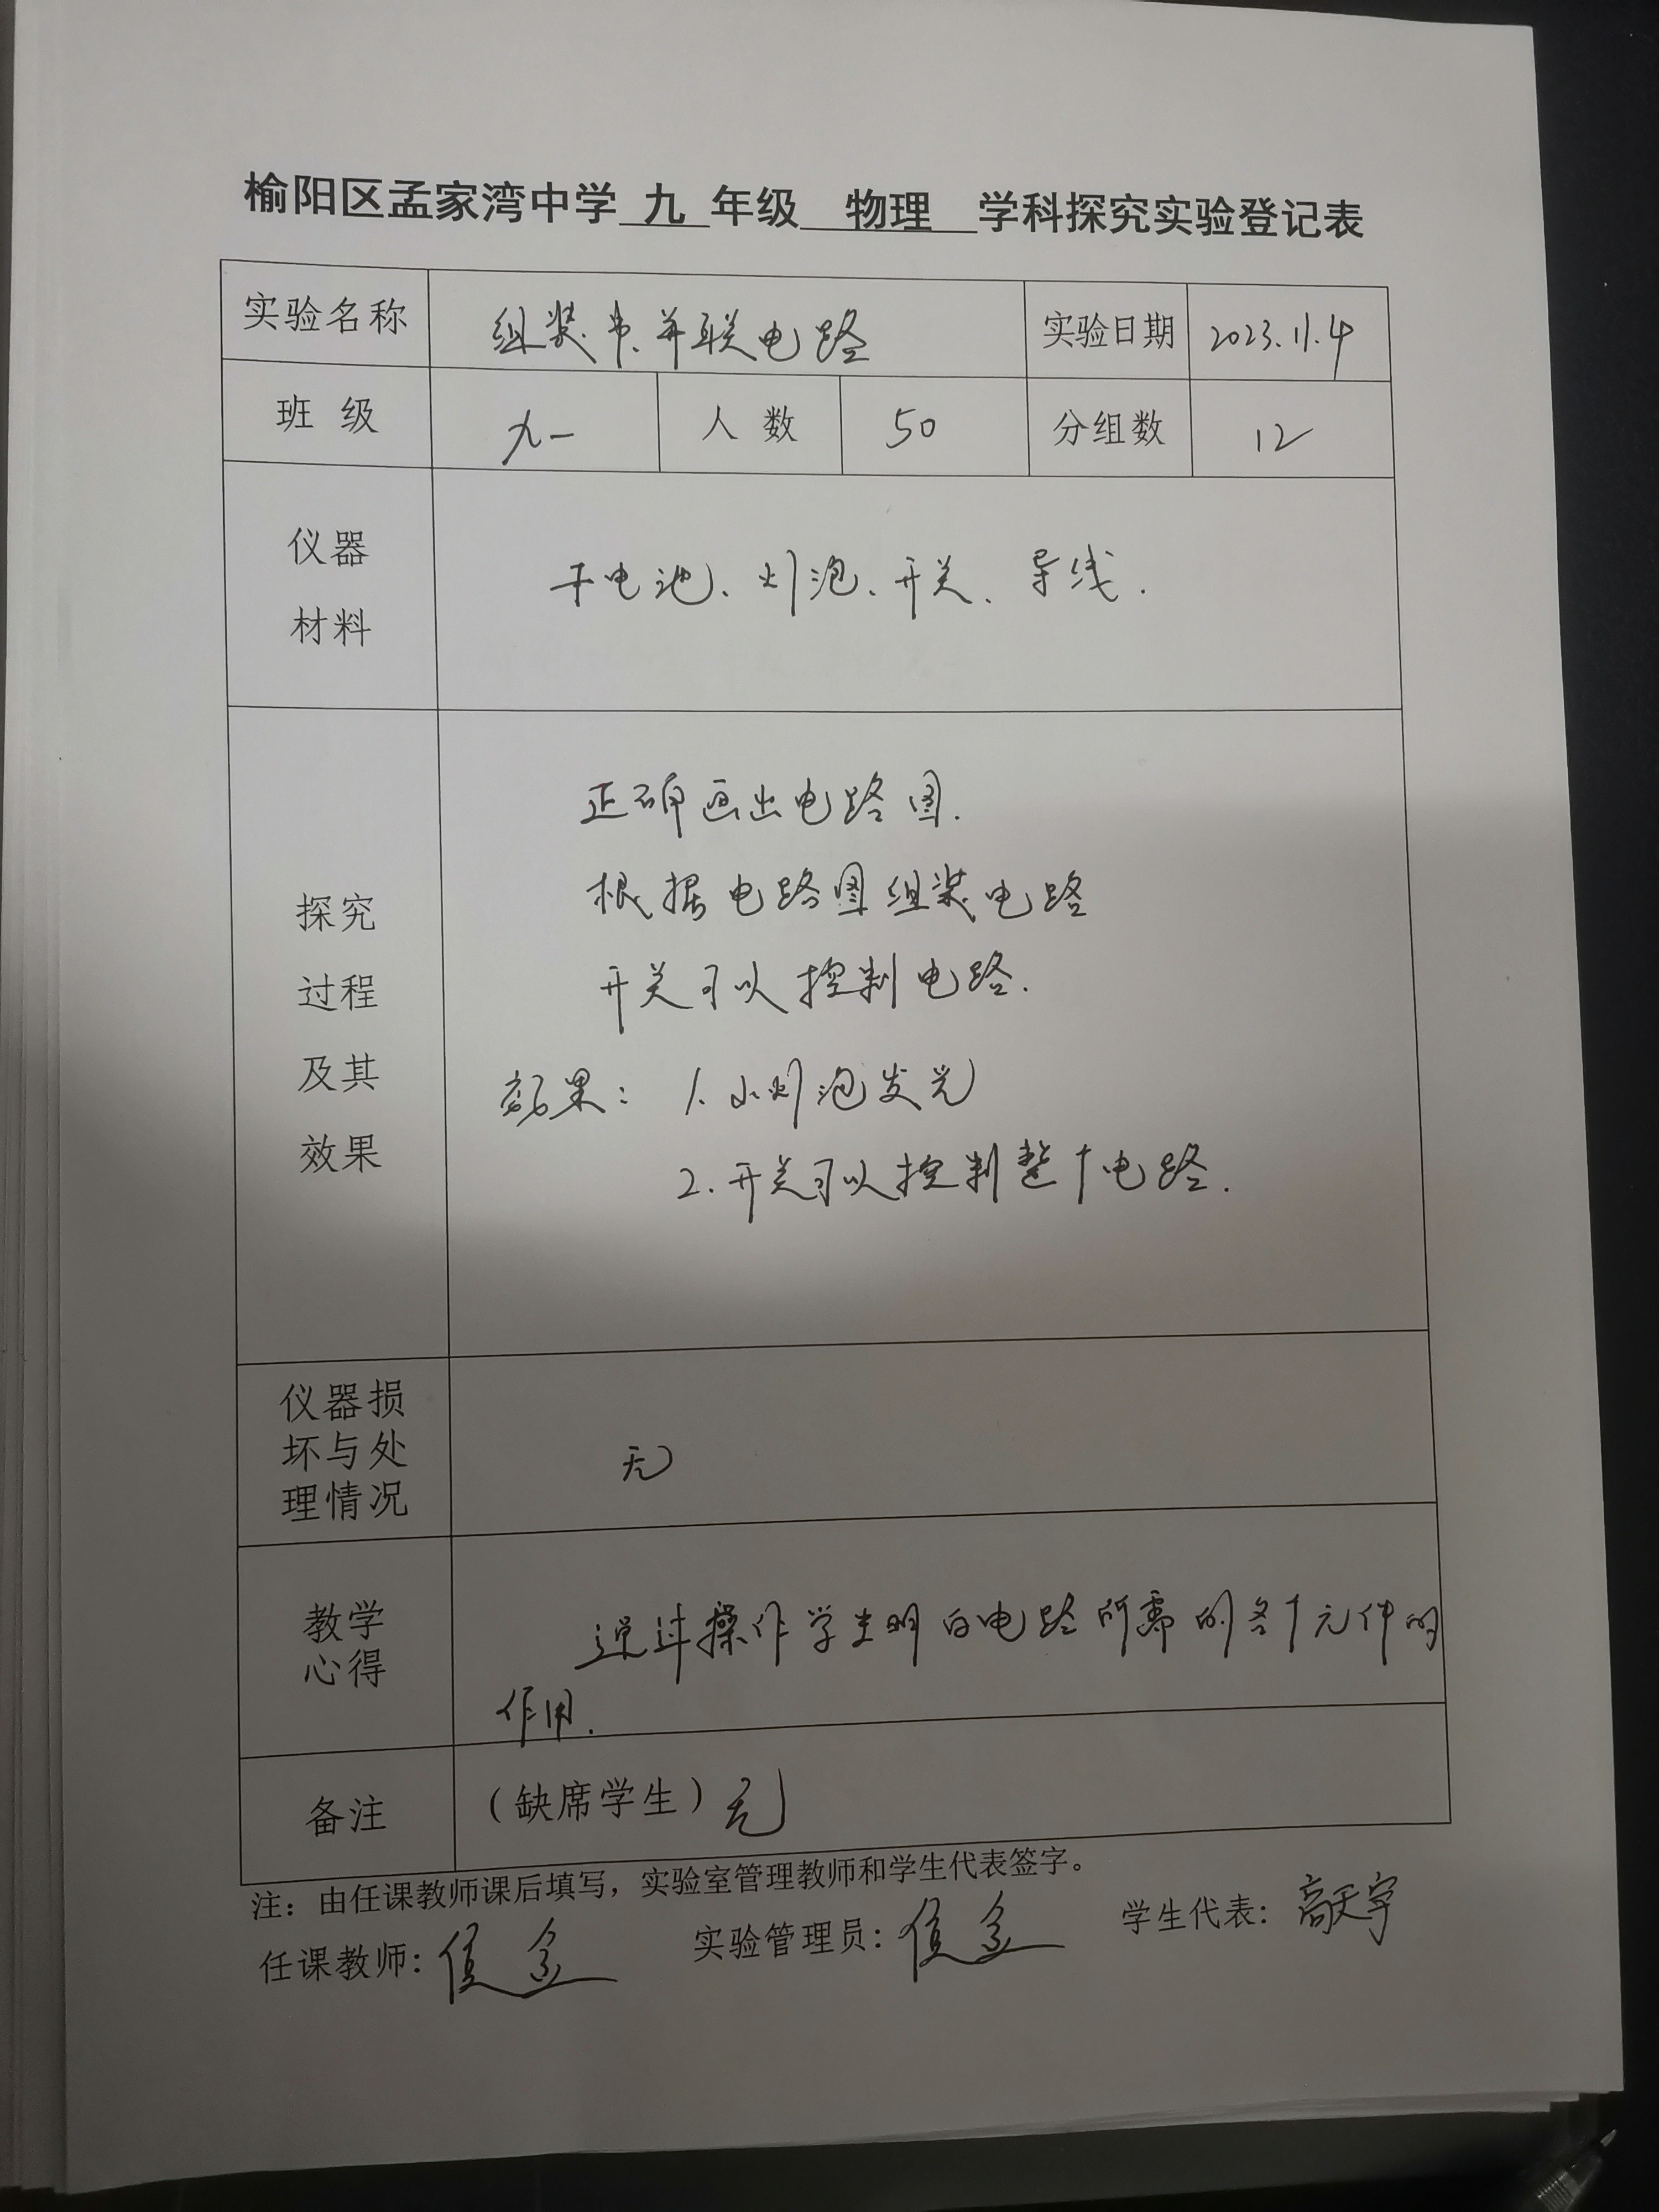 榆阳区孟家湾中学 九 年级 物理 学科探究实验登记表
实验名称 组装串、并联电路 实验日期 2023.11.4
班 级 九一 人 数 50 分组数 12
仪器
材料
干电池、灯泡、开关、导线.
探究
过程
及其
效果
正确画出电路图.
根据电路图组装电路
开关可以控制电路.
效果: 1.小灯泡发光
2.开关可以控制整个电路.
仪器损
坏与处
理情况
无
教学
心得
通过操作学生明白电路所需的各个元件的
作用.
备注 (缺席学生)无
注：由任课教师课后填写，实验室管理教师和学生代表签字。
任课教师: 实验管理员: 学生代表: 高天宇